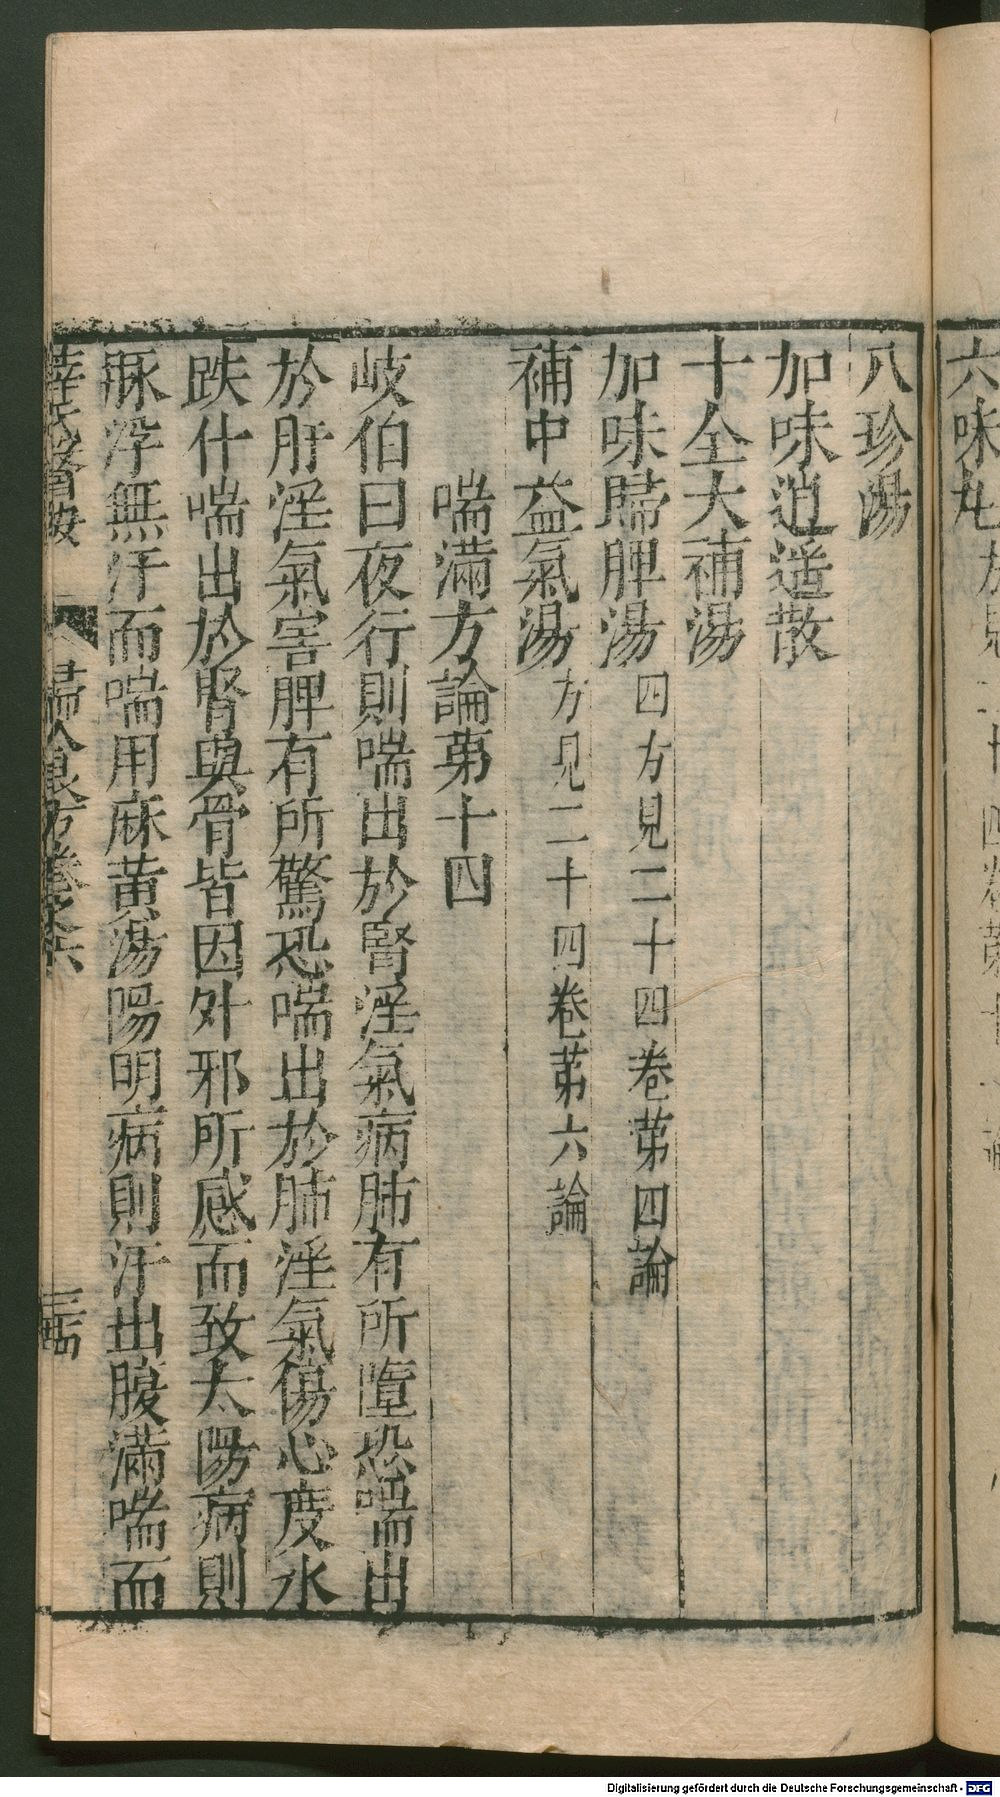 六味丸
八珍湯
加味逍遥散
十全大補湯
加味歸脾湯 四方見二十四卷第四論
補中益氣湯 方見二十四卷第六論
喘滿方論第十四
岐伯曰夜行則喘出於腎淫氣病肺有所墮恐喘出
於肝淫氣害脾有所驚恐喘出於肺淫氣傷心度水
跌什喘出於腎與骨皆因外邪所感而致太陽病則
脉浮無汗而喘用麻黃湯陽明病則汗出腹滿喘而
薛氏醫按 婦人良方卷之六 三十四
Digitalisierung gefördert durch die Deutsche Forschungsgemeinschaft - DFG